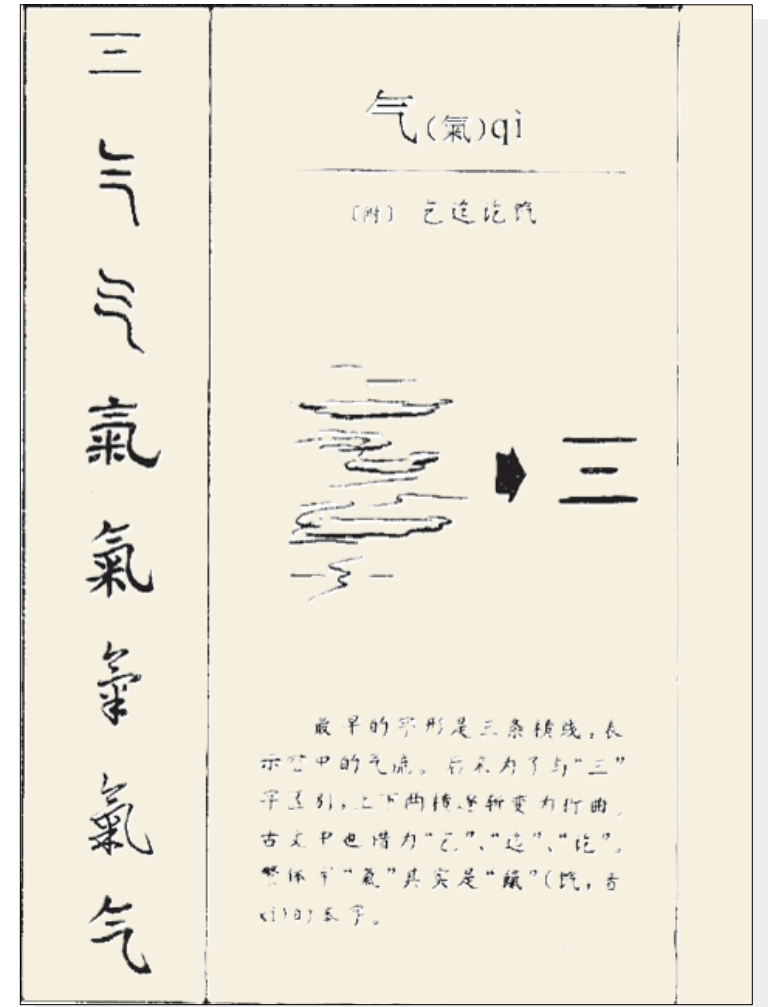 三
气
气
氣
氣
氣
氣
气
气(氣)qì
〔附〕 乞迄讫饩
三
最早的字形是三条横线,表
示空中的气流。后来为了与“三”
字区别,上下两横逐渐变为折曲。
古文中也借为“乞”、“迄”、“讫”。
繁体字“氣”其实是“餼”(饩,音
xì)的本字。